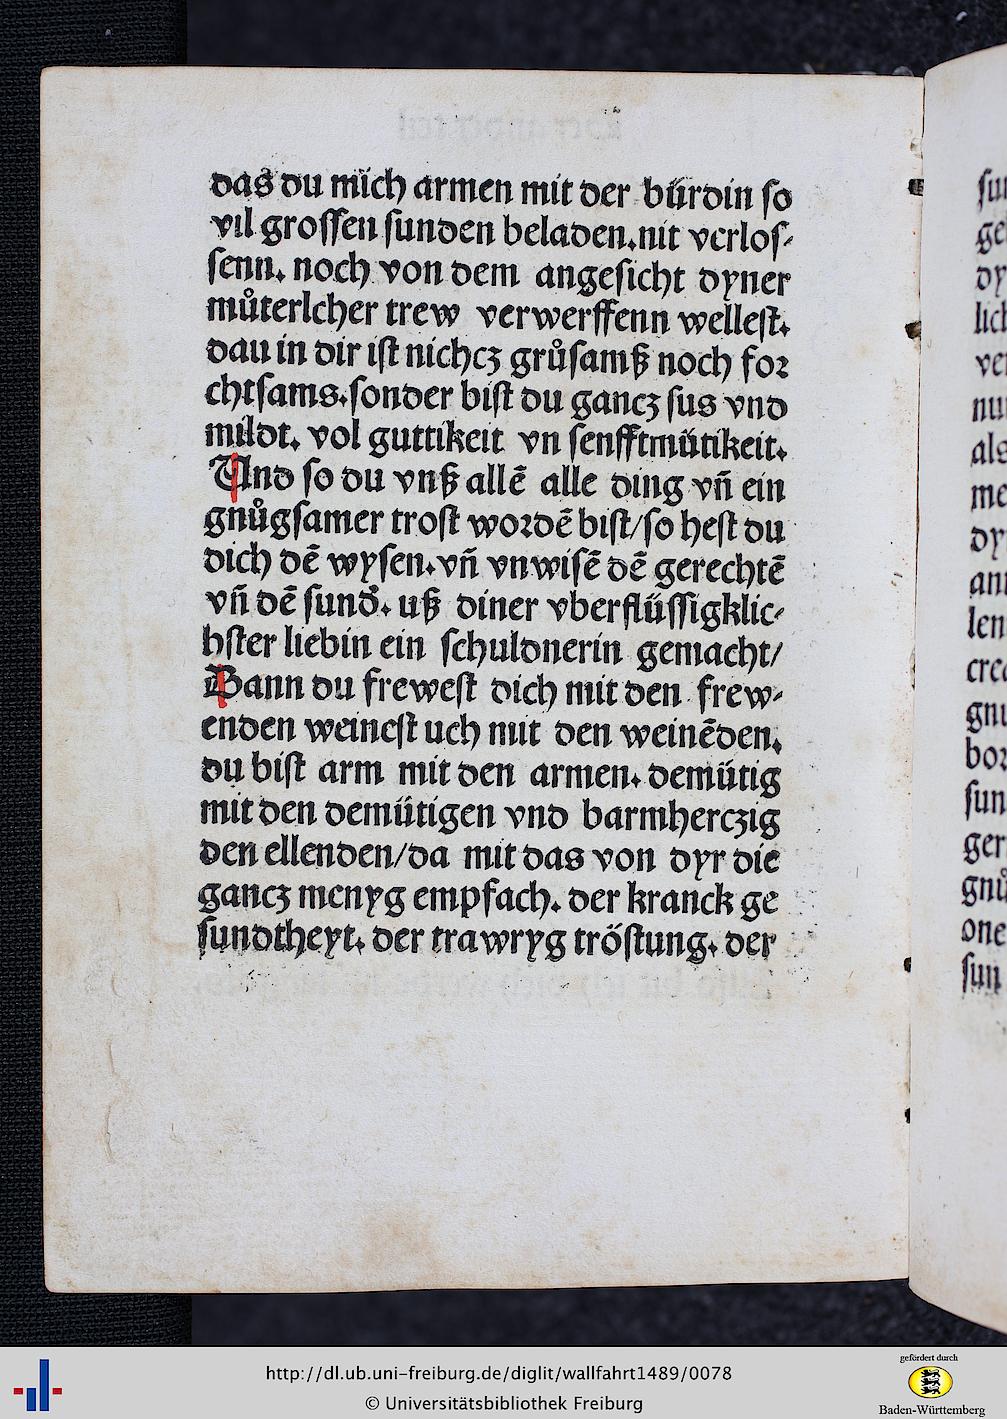 das du mich armen mit der bürdin so
vil grossen sunden beladen.nit verlos-
senn. noch von dem angesicht dyner
můterlcher trew verwerffenn wellest.
dau in dir ist nichcz grůsamß noch for
chtsams.sonder bist du gancz sus vnd
mildt. vol guttikeit vn senfftmütikeit.
Und so du vnß allē alle ding vn̄ ein
gnůgsamer trost wordē bist/so hest du
dich dē wysen.vn̄ vnwisē dē gerechtē
vn̄ dē sund̕. uß diner vberflüssigklic-
hster liebin ein schuldnerin gemacht/
Wann du frewest dich mit den frew-
enden weinest uch mit den weinēden.
du bist arm mit den armen. demütig
mit den demütigen vnd barmherczig
den ellenden/da mit das von dyr die
gancz menyg empfach. der kranck ge
sundtheyt. der trawryg tröstung. der
http://dl.ub.uni-freiburg.de/diglit/wallfahrt1489/0078
© Universitätsbibliothek Freiburg
gefördert durch
Baden-Württemberg